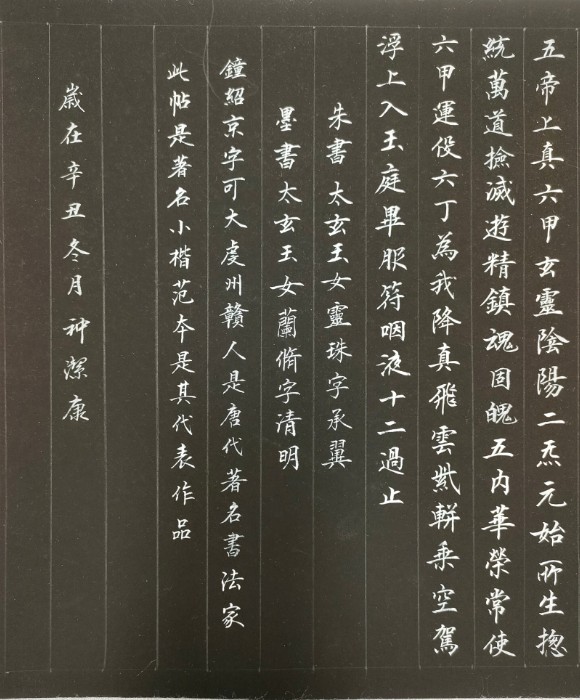 五帝上真六甲玄靈陰陽二炁元始所生揔
統萬道撿滅遊精鎮魂固魄五内華榮常使
六甲運役六丁為我降真飛雲紫軿乘空駕
浮上入玉庭畢服符咽液十二過止
朱書太玄玉女靈珠字承翼
墨書太玄玉女蘭脩字清明
鐘紹京字可大虔州贛人是唐代著名書法家
此帖是著名小楷范本是其代表作品
歲在辛丑冬月种潔康